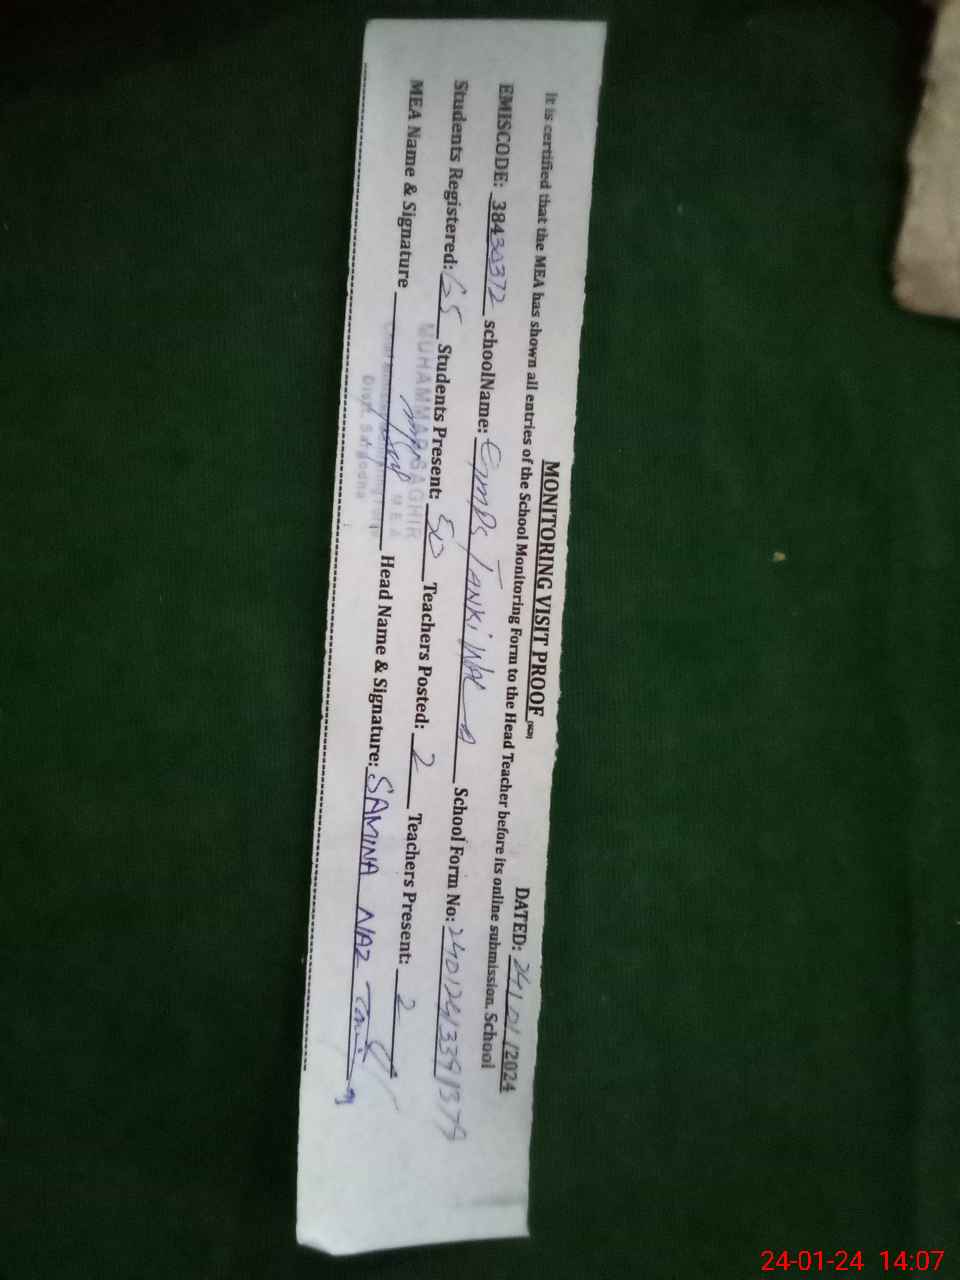 MONITORING VISIT PROOF
DATED: 24/01/2024
It is certified that the MEA has shown all entries of the School Monitoring Form to the Head Teacher before its online submission. School
EMISCODE: 38430372 schoolName: GMPS TANKI WALA School Form No: 24012413391379
Students Registered: 65 Students Present: 50 Teachers Posted: 2 Teachers Present: 2
MEA Name & Signature Head Name & Signature: SAMINA NAZ
MUHAMMAD SAGHIR
M E A
Distt. Sargodha
24-01-24 14:07